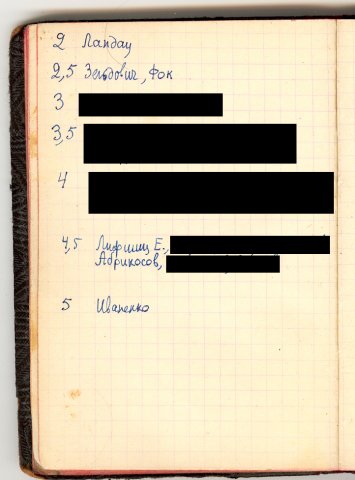 2 Ландау
2,5 Зельдович, Фок
3
3,5
4
4,5 Лифшиц Е.,
Абрикосов,
5 Иваненко